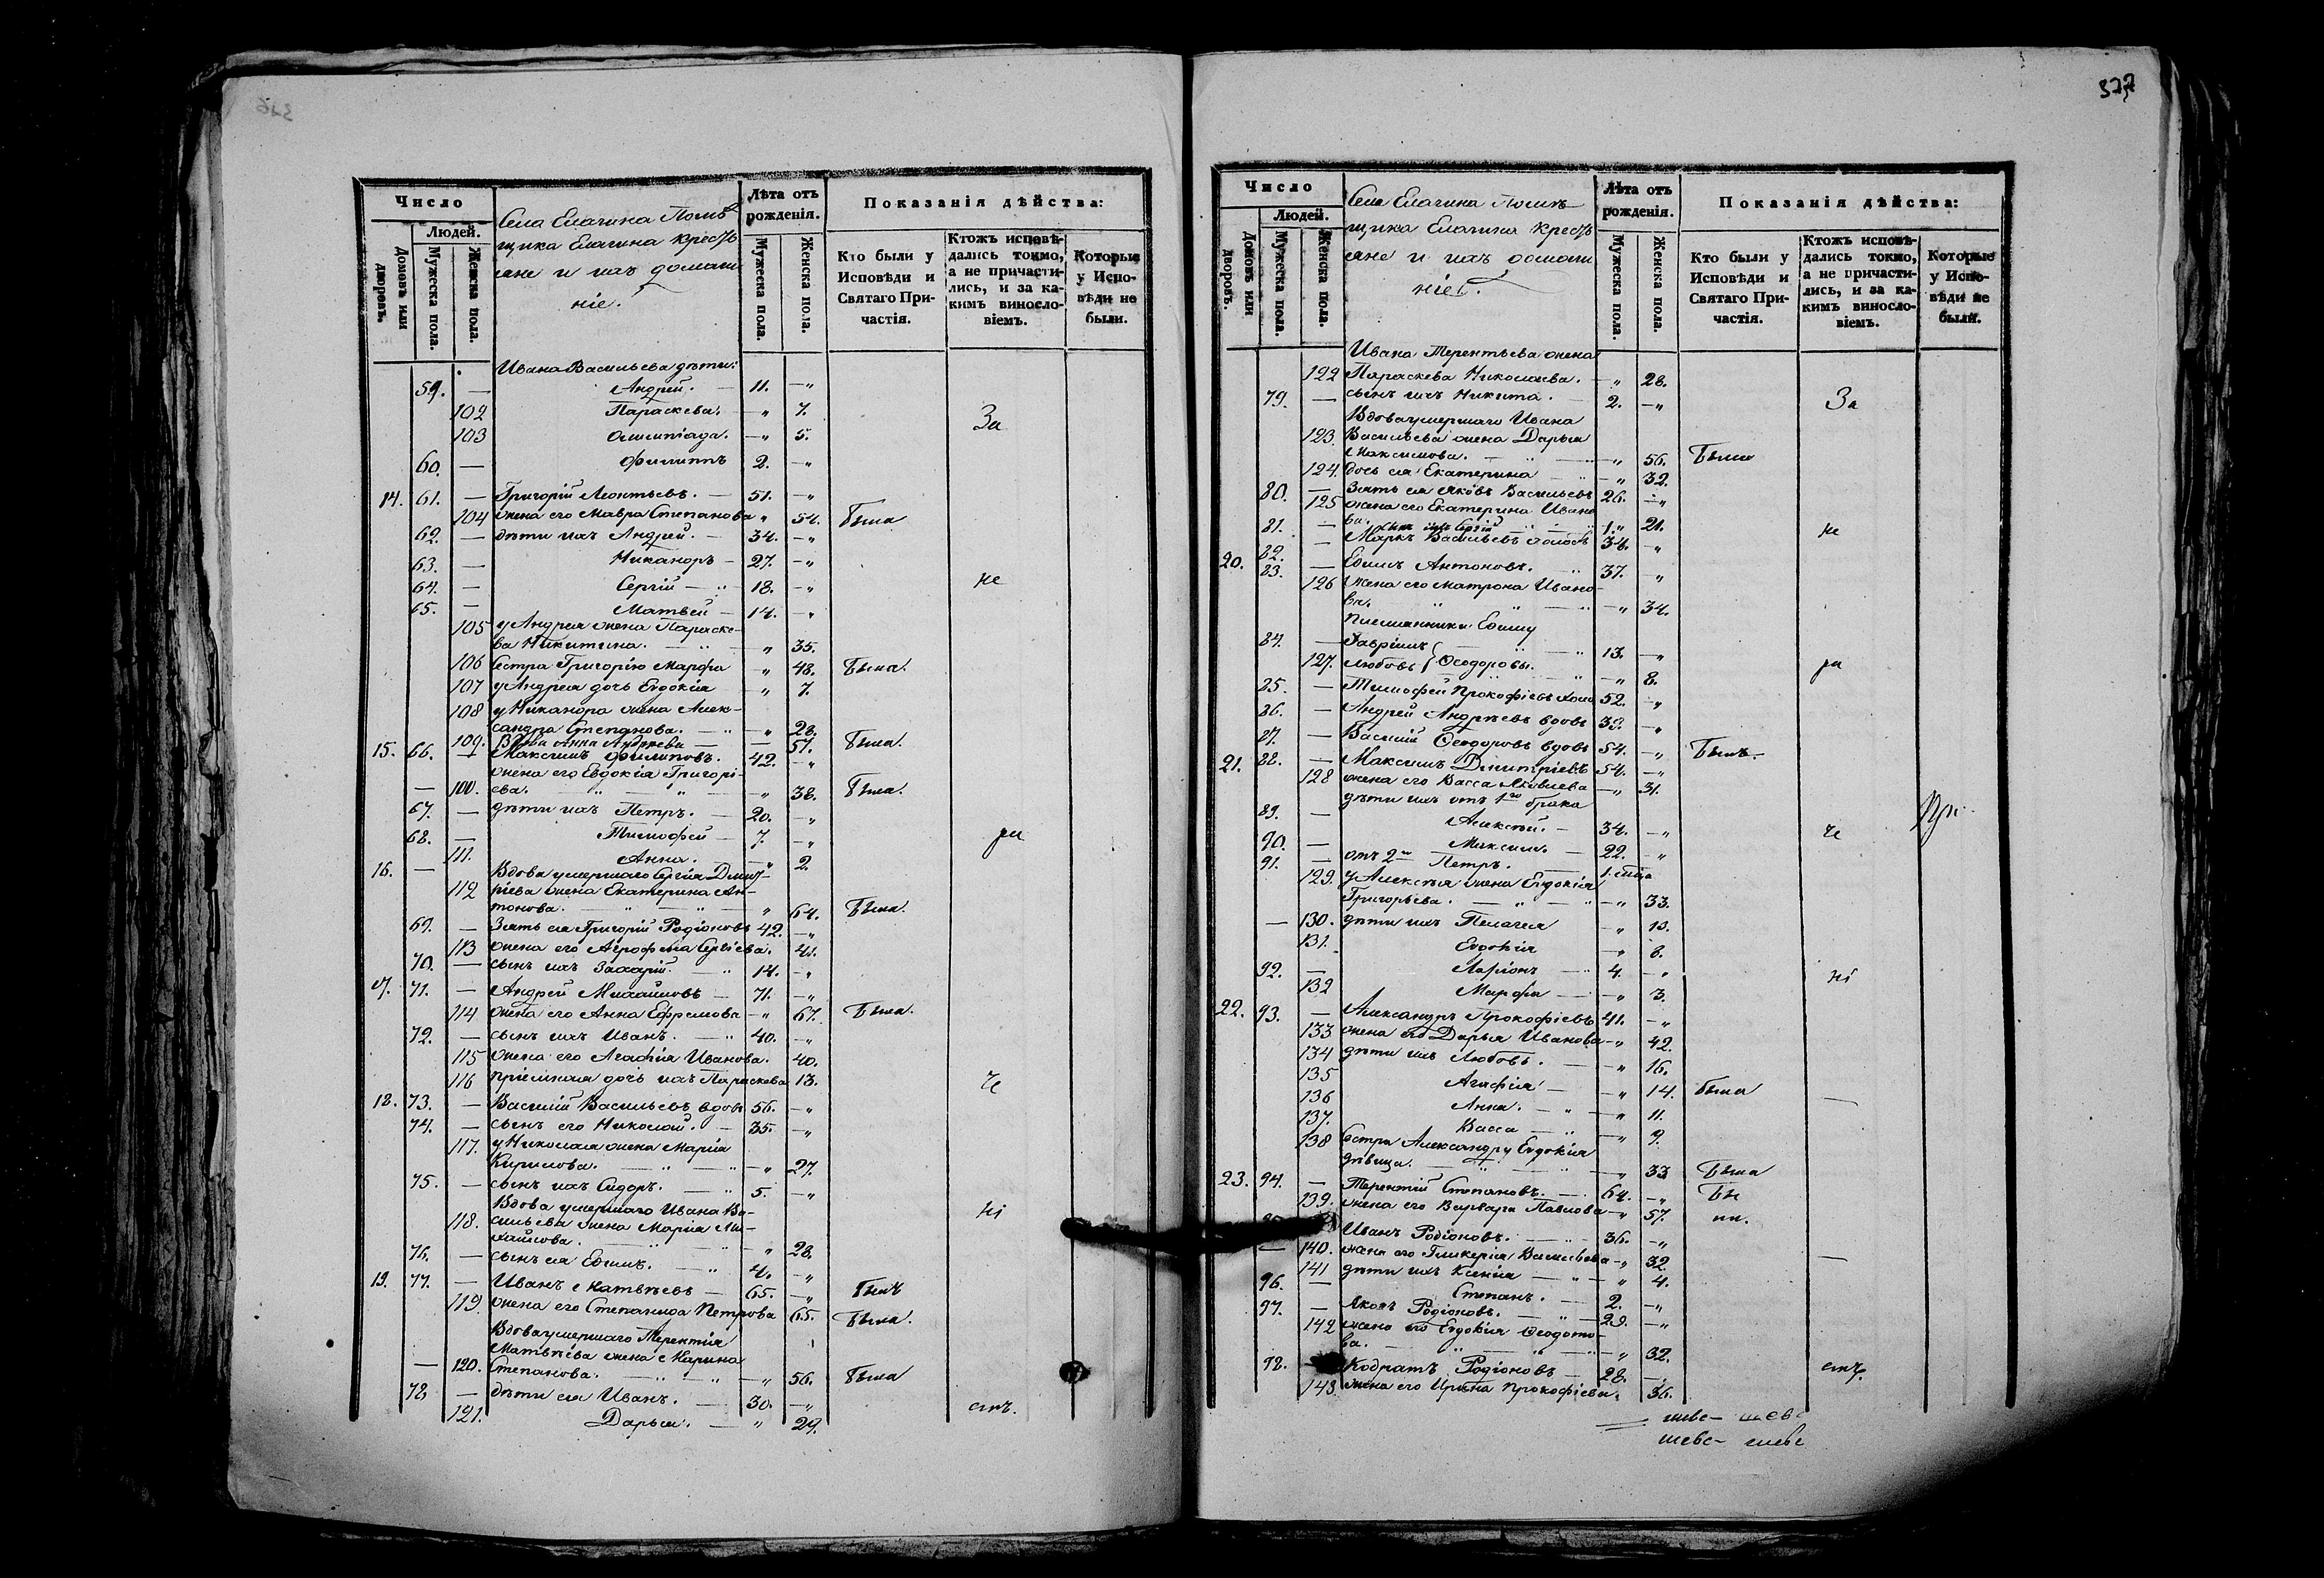 Число
Людей.
Домовъ или дворовъ.
Мужеска пола.
Женска пола.
Села Елагина Помѣ-
щика Елагина крестъ-
яне и ихъ домаш-
ніе.
Лѣта отъ рожденія.
Мужеска пола.
Женска пола.
Показанія дѣйства:
Кто были у Исповѣди и Святаго Причастія.
Ктожъ исповѣдались токмо, а не причастились, и за какимъ винословіемъ.
Которые у Исповѣди не были.
Ивана Васильева дѣти:
59. — Андрей. — 11. —„
102 Параскева. —„ 7.
За
103 Олимпіада. —„ 5.
60. — Филиппъ 2. —„
14. 61. — Григорій Леонтьевъ. — 51. —„
104 жена его Мавра Степанова „ 54. Была
62. — дѣти ихъ Андрей. — 34. —„
63. — Никаноръ — 27. —„
64. — Сергій — „ 18. —„
не
65. — Матвей — 14. —„
105 у Андрея жена Параске-
ва Никитина. — „ 35.
106 Сестра Григорію Марфа „ 48. Была.
107 у Андрея дочь Евдокія „ 7.
108 у Никанора жена Алек-
сандра Степанова. — „ 28.
109. Вдова Анна Андреева — — 57. Была.
15. 66. — Максимъ Филиповъ. 42. —„
жена его Евдокія Григорі-
— 100. ева. — „ 38. Была.
67. — дѣти ихъ Петръ. — 20. —„
68. — Тимофей — 7. —„
ра
111. Анна. —„ 2.
16. — Вдова умершаго Сергія Дмит-
112 ріева жена Екатерина Ан-
тонова. — „ 64. Была.
69. — Зять ея Григорій Родіоновъ 42. —„
113 жена его Агрофена Сергіева. 41.
70. — сынъ ихъ Захарій. — „ 14. —„
17. 71. — Андрей Михайловъ — 71. —„
114 жена его Анна Ефремова —„ 67. Была.
72. — сынъ ихъ Иванъ. — „ 40. —„
115 жена его Агафія Иванова. 40.
116 пріемная дочь ихъ Параскева 13.
че
18. 73. — Василій Васильевъ вдовъ 56. —„
74. — сынъ его Николай. — 35. —„
117. у Николая жена Марія
Кирилова. — „ 27.
75. — сынъ ихъ Сидоръ. — „ 5. —„
Вдова умершаго Ивана Ва-
ні
118. сильева жена Марія Ми-
хайлова. — „ 28.
76. — сынъ ея Ефимъ. — „ 4. —„
19. 77. — Иванъ Матвѣевъ — 65. —„ Былъ
119 жена его Степанида Петрова 65. Была.
Вдова умершаго Терентія
Матвѣева жена Марина
— 120. Степанова. — „ 56. Была
78 — дѣти ея Иванъ. — 30. —„
емъ.
121. Дарья. — „ 29.
377
Число
Людей.
Домовъ или дворовъ.
Мужеска пола.
Женска пола.
Села Елагина Помѣ-
щика Елагина крестъ-
яне и ихъ домаш-
ніе.
Лѣта отъ рожденія.
Мужеска пола.
Женска пола.
Показанія дѣйства:
Кто были у Исповѣди и Святаго Причастія.
Ктожъ исповѣдались токмо, а не причастились, и за какимъ винословіемъ.
Которые у Исповѣди не были.
Ивана Терентьева жена
122 Параскева Николаева. —„ 28.
79. — сынъ ихъ Никита. — 2. —„
За
Вдова умершаго Ивана
123. Васильева жена Дарья
Максимова. — „ 56. Была
124. дочь ея Екатерина — „ 32.
80. — Зять ея Яковъ Васильевъ 26. —„
125 жена его Екатерина Ивано-
ва. — „ 21.
81. — сынъ ихъ Сергій 1. „
не
82. — Маркъ Васильевъ холостъ 34. —„
20. 83. — Ефимъ Антоновъ. — „ 37. „
126 жена его Матрона Ивано-
ва. — „ 34.
племянники Ефиму
84. — Гавріилъ — 13. —„
127. Любовь } Ѳеодоровы. — „ 8.
ра
85. — Тимофей Прокофіевъ холо 52. —„
86. — Андрей Андрѣевъ вдовъ 38. —„
87. — Василій Ѳеодоровъ вдовъ 54. —„ Былъ.
21. 88. — Максимъ Дмитріевъ 54. —„
128 жена его Васса Яковлева —„ 31.
дѣти ихъ отъ 1го брака
89. — Алексѣй. — 34. —„
че
90. — Максим. — 22. —„
91. — отъ 2го Петръ. — 1.
129. у Алексѣя жена Евдокія
Григорьева. — „ 33.
— 130. дѣти ихъ Пелагея „ 13.
131. Евдокія „ 8.
92. — Ларіонъ — 4. —„
ні
132 Марфа — „ 3.
22. 93. — Александръ Прокофіевъ 41. —„
133 жена его Дарья Иванова —„ 42.
134 дѣти ихъ Любовь. — „ 16.
135 Агафія — „ 14. была
136 Анна. — „ 11.
137. Васса — „ 9.
138 Сестра Александру Евдокія
дѣвица. — „ 33 Была
23. 94. — Терентій Степановъ. — 64. —„
139. жена его Варвара Павлова —„ 57.
Иванъ Родіоновъ. — 36. —„
— 140. жена его Гликерія Васильева —„ 32.
141 дѣти ихъ Ксенія — „ 4.
96. — Степанъ. — 2. —„
97. — Яковъ Родіоновъ. — 29. —„
142 жена его Евдокія Ѳеодото-
ва. — „ 32.
98. Кодратъ Родіоновъ — 28. —„
емъ.
143 жена его Ирина Прокофіева. 36.